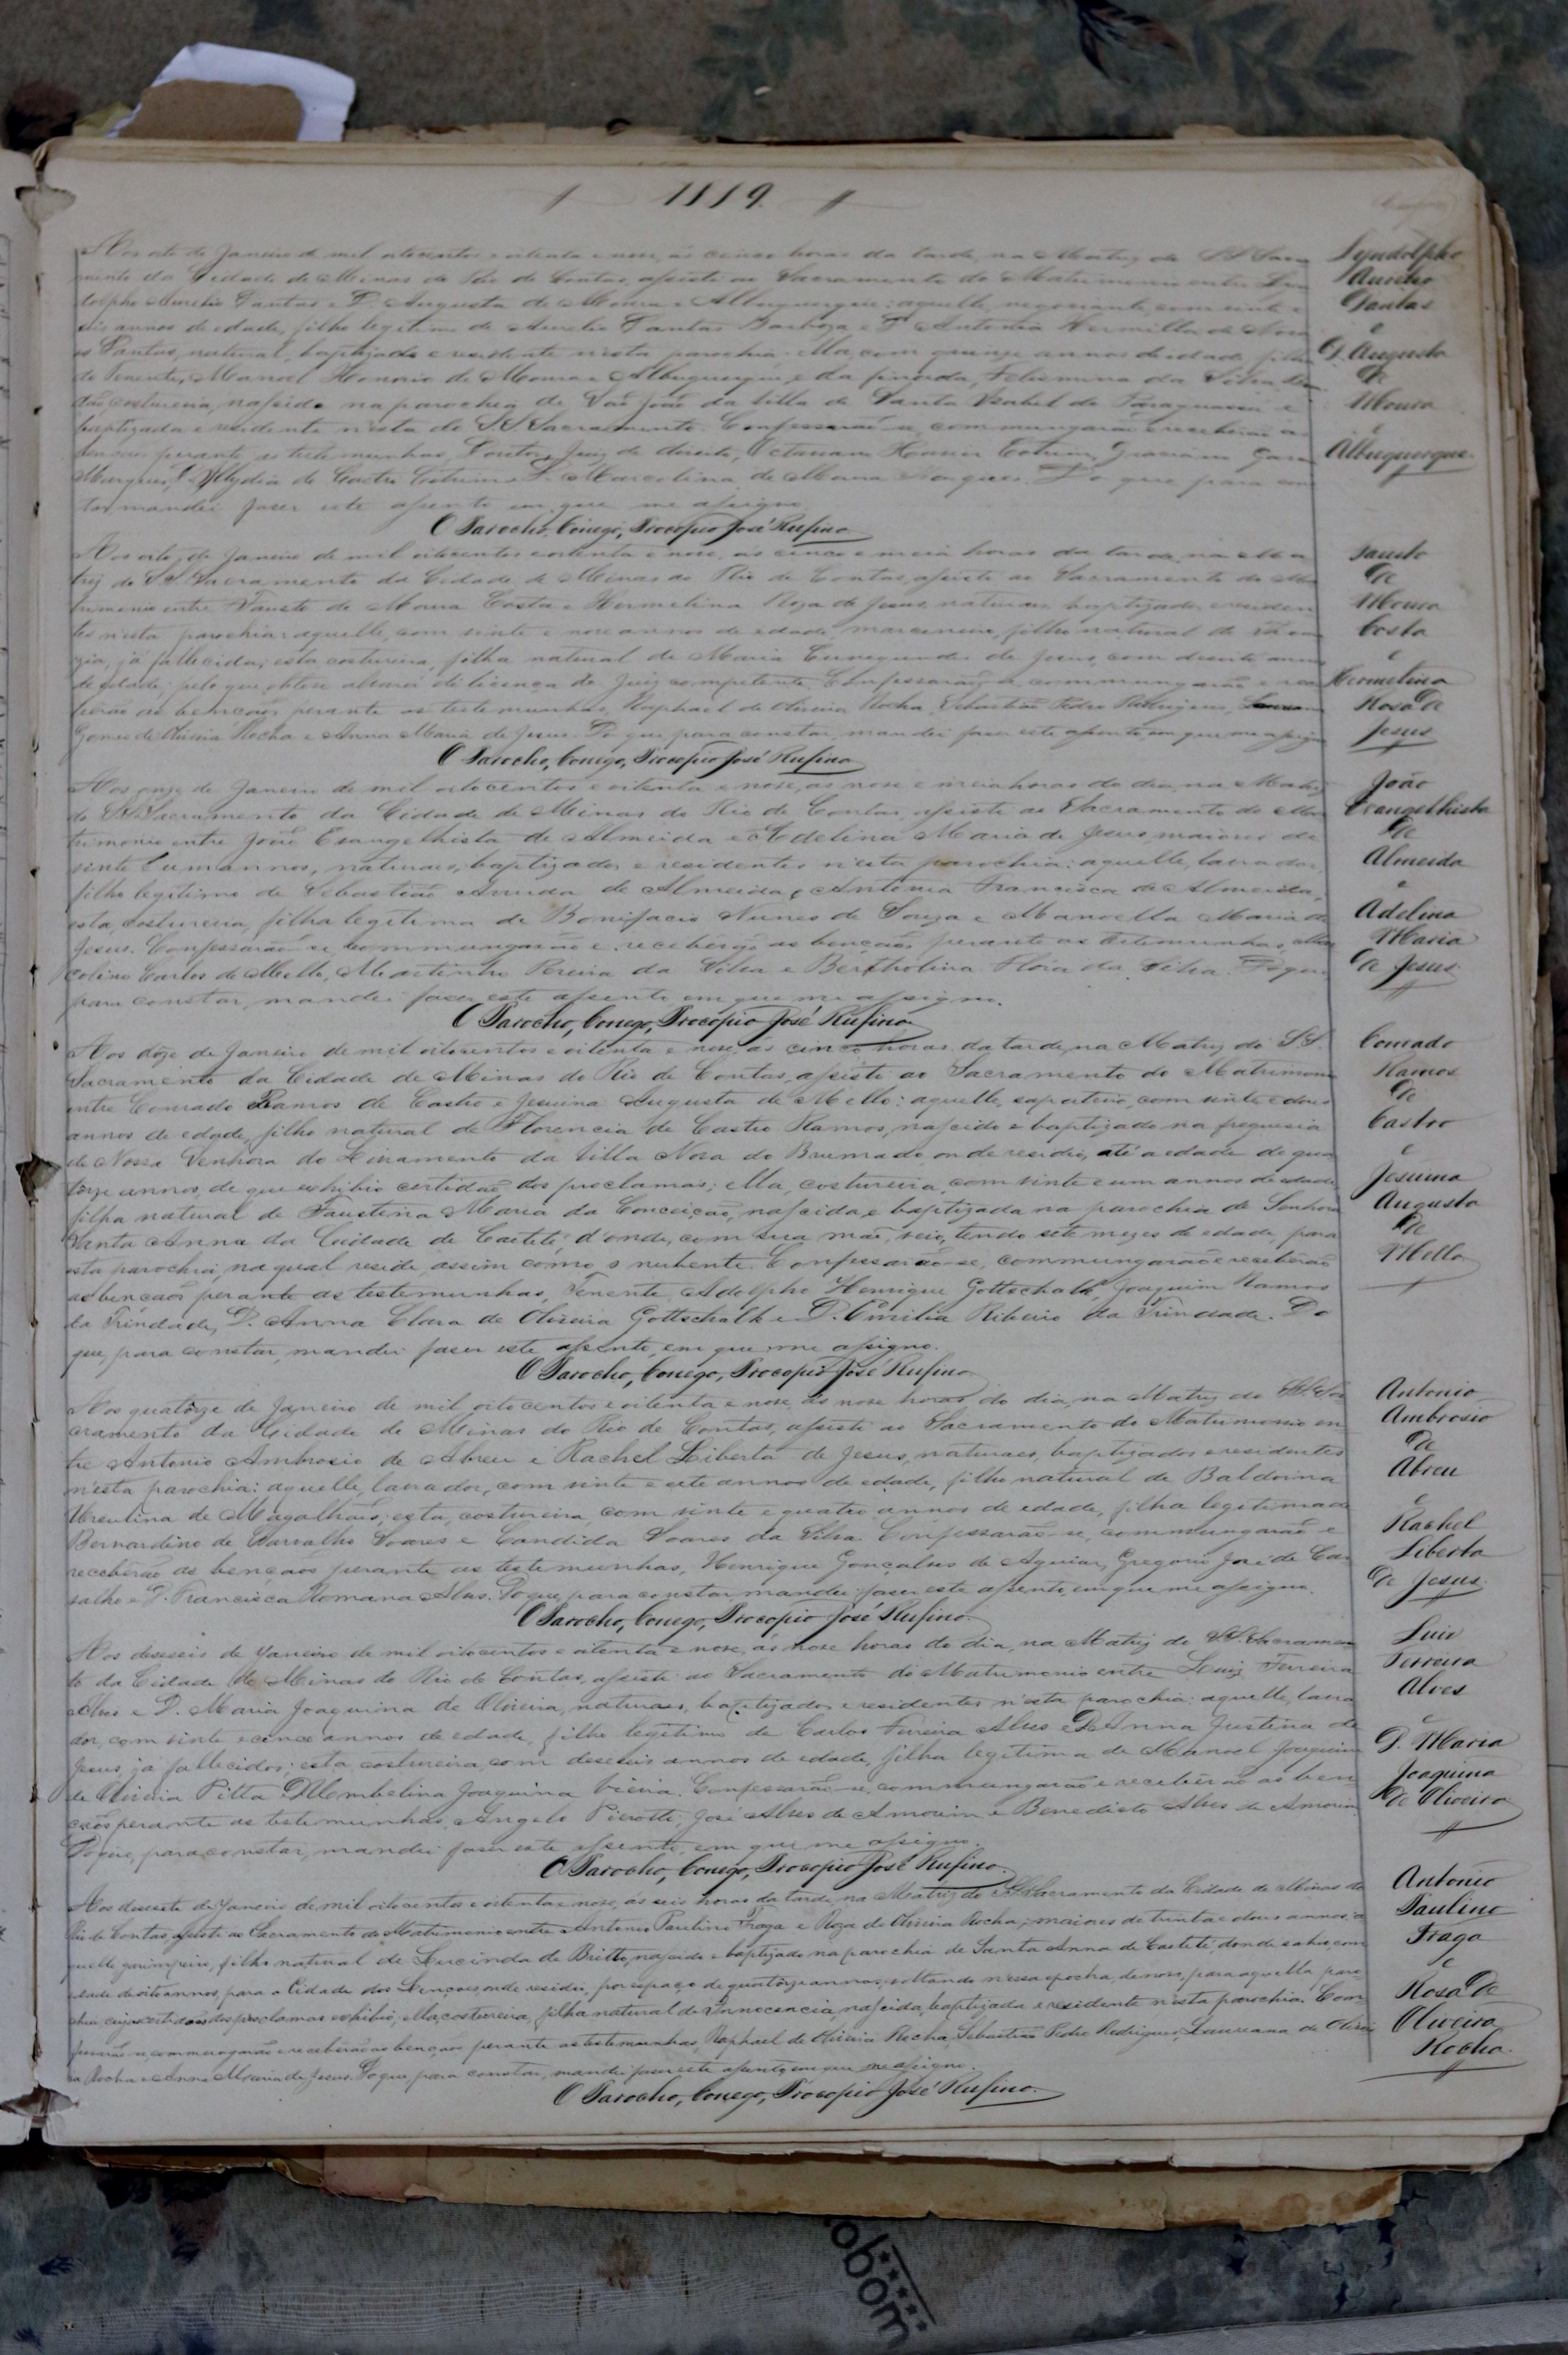 1889.
Aos oito de Janeiro de mil oitocentos e oitenta e nove, ás cinco horas da tarde, na Matriz do SS. Sacra
mento da Cidade de Minas do Rio de Contas, assisti ao Sacramento do Matrimonio entre Lyn
dolpho Aurelio Dantas e D. Augusta de Moura e Albuquerque: aquelle, negociante, com vinte e
seis annos de edade, filho legitimo de Aurelio Dantas Barboza e D. Antonia Hermilla de
Dantas, natural, baptizado e residente n'esta parochia. Ella, com quinze annos de edade, filha
do Tenente, Manoel Honorio de Moura e Albuquerque, e da finada, Felismina da Silva
costureira, nascida na parochia de São João da Villa de Santa Isabel do Paraguassú e
baptizada e residente n'esta do SS. Sacramento. Confessarão-se, commungarão e receberão as
bençãos perante as testemunhas, Doutor, Juiz de direito,
Marques, D. de Castro D. Marcolina de Moura Marques. Do que para cons
tar mandei faser este assento em que me assigno.
O Parocho, Conego, Procopio José Rufino
Lyndolpho
Aurelio
Dantas
e
D. Augusta
de
Moura
e
Albuquerque.
Aos oito de Janeiro de mil oitocentos e oitenta e nove, ás cinco e meia horas da tarde, na Ma
triz do SS. Sacramento da Cidade de Minas do Rio de Contas, assisti ao Sacramento do Ma
trimonio entre Fausto de Moura Costa e Hermelina Roza de Jesus, naturaes, baptizados, e residen
tes n'esta parochia: aquelle, com vinte e nove annos de edade, marceneiro, filho natural de
já fallecida; esta costureira, filha natural de Maria Cunegundes de Jesus, com desoito annos
de edade; pelo que obteve alvará de licença do Juiz competente. Confessarão-se, commungarão e rece
berão as bençãos perante as testemunhas, Raphael de Oliveira Rocha, Sebastião Pedro Rodrigues,
Gomes de Oliveira Rocha e Anna Maria de Jesus. Do que, para constar, mandei faser este assento, em que me assigno
O Parocho, Conego, Procopio José Rufino
Fausto
de
Moura
Costa
e
Hermelina
Rosa de
Jesus
Aos onze de Janeiro de mil oitocentos e oitenta e nove, ás nove e meia horas do dia, na Matriz
do SS. Sacramento da Cidade de Minas do Rio de Contas, assisti ao Sacramento do Ma
trimonio entre João Evangelhista de Almeida e Adelina Maria de Jesus, maiores de
vinte e um annos, naturaes, baptizados e residentes n'esta parochia: aquelle, lavrador,
filho legitimo de Sebastião Arruda de Almeida e Antonia Francisca de Almeida,
esta, costureira, filha legitima de Bonifacio Nunes de Souza e Manoella Maria de
Jesus. Confessarão-se, commungarão e receberão as bençãos, perante as testemunhas, Mar
colino Carlos de Mello, Martinho Pereira da Silva e Bertholina Flora da Silva. Do que
para constar, mandei faser este assento em que me assigno.
O Parocho, Conego, Procopio José Rufino
João
Evangelhista
de
Almeida
e
Adelina
Maria
de Jesus.
Aos doze de Janeiro de mil oitocentos e oitenta e nove, ás cinco horas da tarde, na Matriz do SS.
Sacramento da Cidade de Minas do Rio de Contas, assisti ao Sacramento do Matrimonio
entre Conrado Ramos de Castro e Jesuina Augusta de Mello: aquelle, sapateiro, com vinte e dous
annos de edade, filho natural de Florencia de Castro Ramos, nascido e baptizado na freguesia
de Nossa Senhora do Livramento da Villa Nova do Brumado, onde residio, até a edade de qua
torze annos, de que exhibio certidão dos proclamas; ella, costureira, com vinte e um annos de edade,
filha natural de Faustina Maria da Conceição, nascida e baptizada na parochia de Senhora
Santa Anna da Cidade de Caeteté, d'onde, com sua mãe, veio, tendo sete mezes de edade, para
esta parochia, na qual reside, assim como o nubente. Confessarão-se, commungarão e receberão
as bençãos perante as testemunhas, Tenente, Adolpho Henrique Gottschalk, Joaquim Ramos
da Trindade, D. Anna Clara de Oliveira Gottschalk e D. Emilia Ribeiro da Trindade. Do
que, para constar, mandei faser este assento, em que me assigno.
O Parocho, Conego, Procopio José Rufino
Conrado
Ramos
de
Castro
e
Jesuina
Augusta
de
Mello
Aos quatorze de Janeiro de mil oitocentos e oitenta e nove, ás nove horas do dia, na Matriz do SS. Sa
cramento da Cidade de Minas do Rio de Contas, assisti ao Sacramento do Matrimonio en
tre Antonio Ambrosio de Abreu e Rachel Liberta de Jesus, naturaes, baptizados e residentes
n'esta parochia: aquelle, lavrador, com vinte e sete annos de edade, filho natural de Baldoina
Urculina de Magalhães; esta, costureira, com vinte e quatro annos de edade, filha legitima de
Bernardino de Carvalho Soares e Candida Soares da Silva. Confessarão-se, commungarão e
receberão as bençãos perante as testemunhas, Henrique Gonçalves de Aguiar, Gregorio José de Car
valho e D. Francisca Romana Alves. Do que, para constar mandei faser este assento, em que me assigno.
O Parocho, Conego, Procopio José Rufino.
Antonio
Ambrosio
de
Abreu
e
Rachel
Liberta
de Jesus.
Aos deseseis de Janeiro de mil oitocentos e oitenta e nove, ás nove horas do dia, na Matriz do SS. Sacramen
to da Cidade de Minas do Rio de Contas, assisti ao Sacramento do Matrimonio entre Luiz Ferreira
Alves e D. Maria Joaquina de Oliveira, naturaes, baptizados e residentes n'esta parochia: aquelle, lavra
dor, com vinte e cinco annos de edade, filho legitimo de Carlos Ferreira Alves e D. Anna Justina de
Jesus, já fallecidos; esta costureira, com deseseis annos de edade, filha legitima de Manoel Joaquim
de Oliveira Pitta e D. Umbelina Joaquina Vieira. Confessarão-se, commungarão e receberão as ben
çãos perante as testemunhas, Angelo Pierotti, José Alves de Amorim e Benedicto Alves de Amorim.
Do que, para constar, mandei faser este assento, em que me assigno.
O Parocho, Conego, Procopio José Rufino.
Luis
Ferreira
Alves
e
D. Maria
Joaquina
de Oliveira
Aos desesete de Janeiro de mil oitocentos e oitenta e nove, ás seis horas da tarde, na Matriz do SS. Sacramento da Cidade de Minas do
Rio de Contas, assisti ao Sacramento do Matrimonio entre Antonio Paulino Fraga e Roza de Oliveira Rocha, maiores de trinta e dous annos: a
quelle garimpeiro, filho natural de Lucinda de Britto, nascido e baptizado na parochia de Santa Anna de Caeteté, donde sahio, com
edade de oito annos, para a Cidade dos Lençoes, onde residio, por espaço de quatorze annos, voltando n'essa epocha, de novo, para aquella paro
chia, cujas certidões dos proclamas exhibio; ella, costureira, filha natural de Innocencia, nascida, baptizada e residente n'esta parochia. Con
fessarão-se, commungarão e receberão as bençãos perante as testemunhas, Raphael de Oliveira Rocha, Sebastião Pedro Rodrigues, Laureana de Olivei
ra Rocha e Anna Maria de Jesus. Do que, para constar, mandei faser este assento, em que me assigno.
O Parocho, Conego, Procopio José Rufino.
Antonio
Paulino
Fraga
e
Rosa de
Oliveira
Rocha.
obom